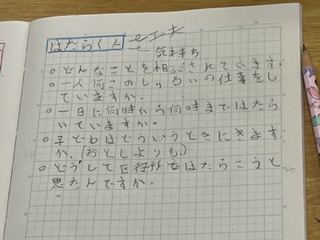 はたらく人
気持ち
○どんなことを相談されていますか。
○一人何このしゅるいの仕事をし
ていますか。
○一日に何時から何時まではたら
いていますか。
○子どもはどういうときにきます
か。(おとしよりも。)
○どうして区役所ではたらこうと
思たんですか。